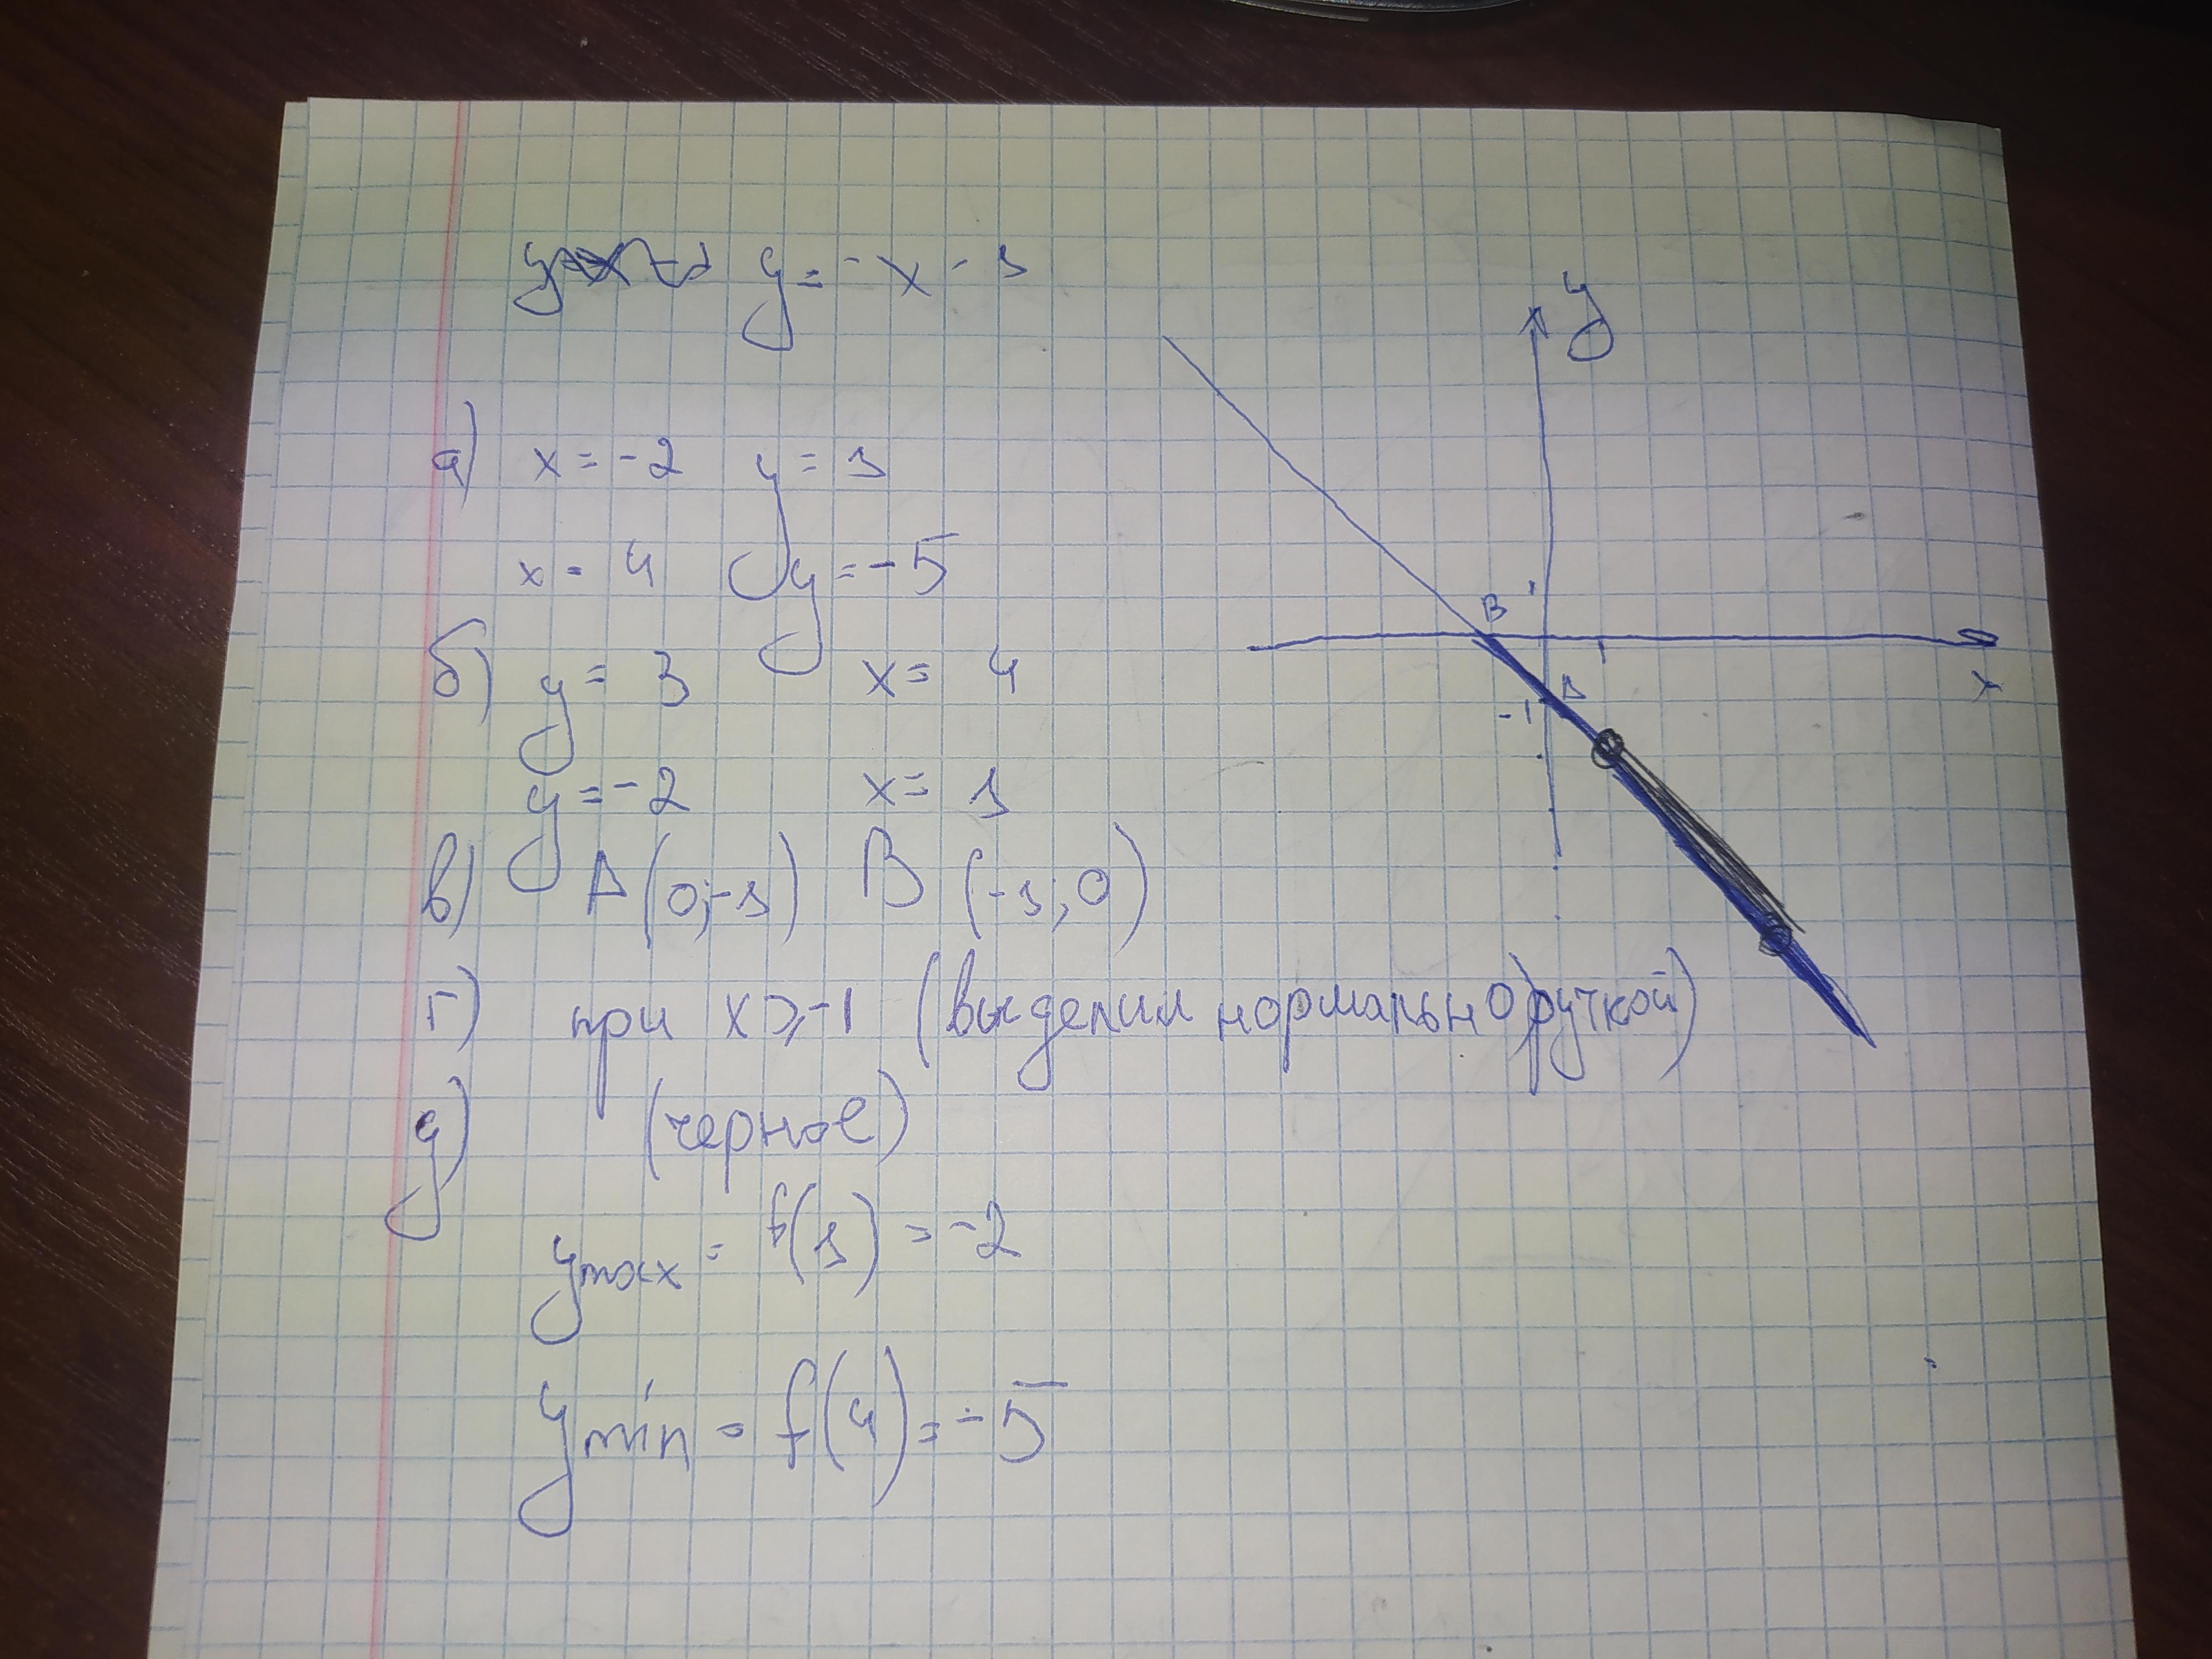 y = -x - 1
а) x = -2 y = 1
x = 4 y = -5
б) y = 3 x = 4
y = -2 x = 1
в) A (0; -1) B (-1; 0)
г) при x ⩾ -1 (выделил нормально ручкой)
д) (черное)
y max = f(1) = -2
y min = f(4) = -5
y
B
1
1
x
A
-1